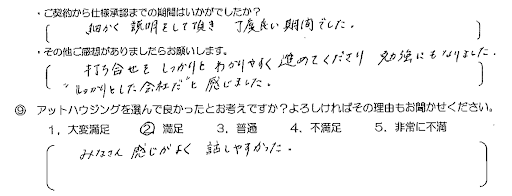 ・ご契約から仕様承認までの期間はいかがでしたか?
細かく説明をして頂き 丁度良い期間でした。
・その他ご感想がありましたらお願いします。
打ち合せをしっかりとわかりやすく進めてくださり 勉強にもなりました。
"しっかりとした会社だ"と感じました。
⑨ アットハウジングを選んで良かったとお考えですか?よろしければその理由もお聞かせください。
1. 大変満足 ② 満足 3. 普通 4. 不満足 5. 非常に不満
みなさん 感じがよく 話しやすかった。